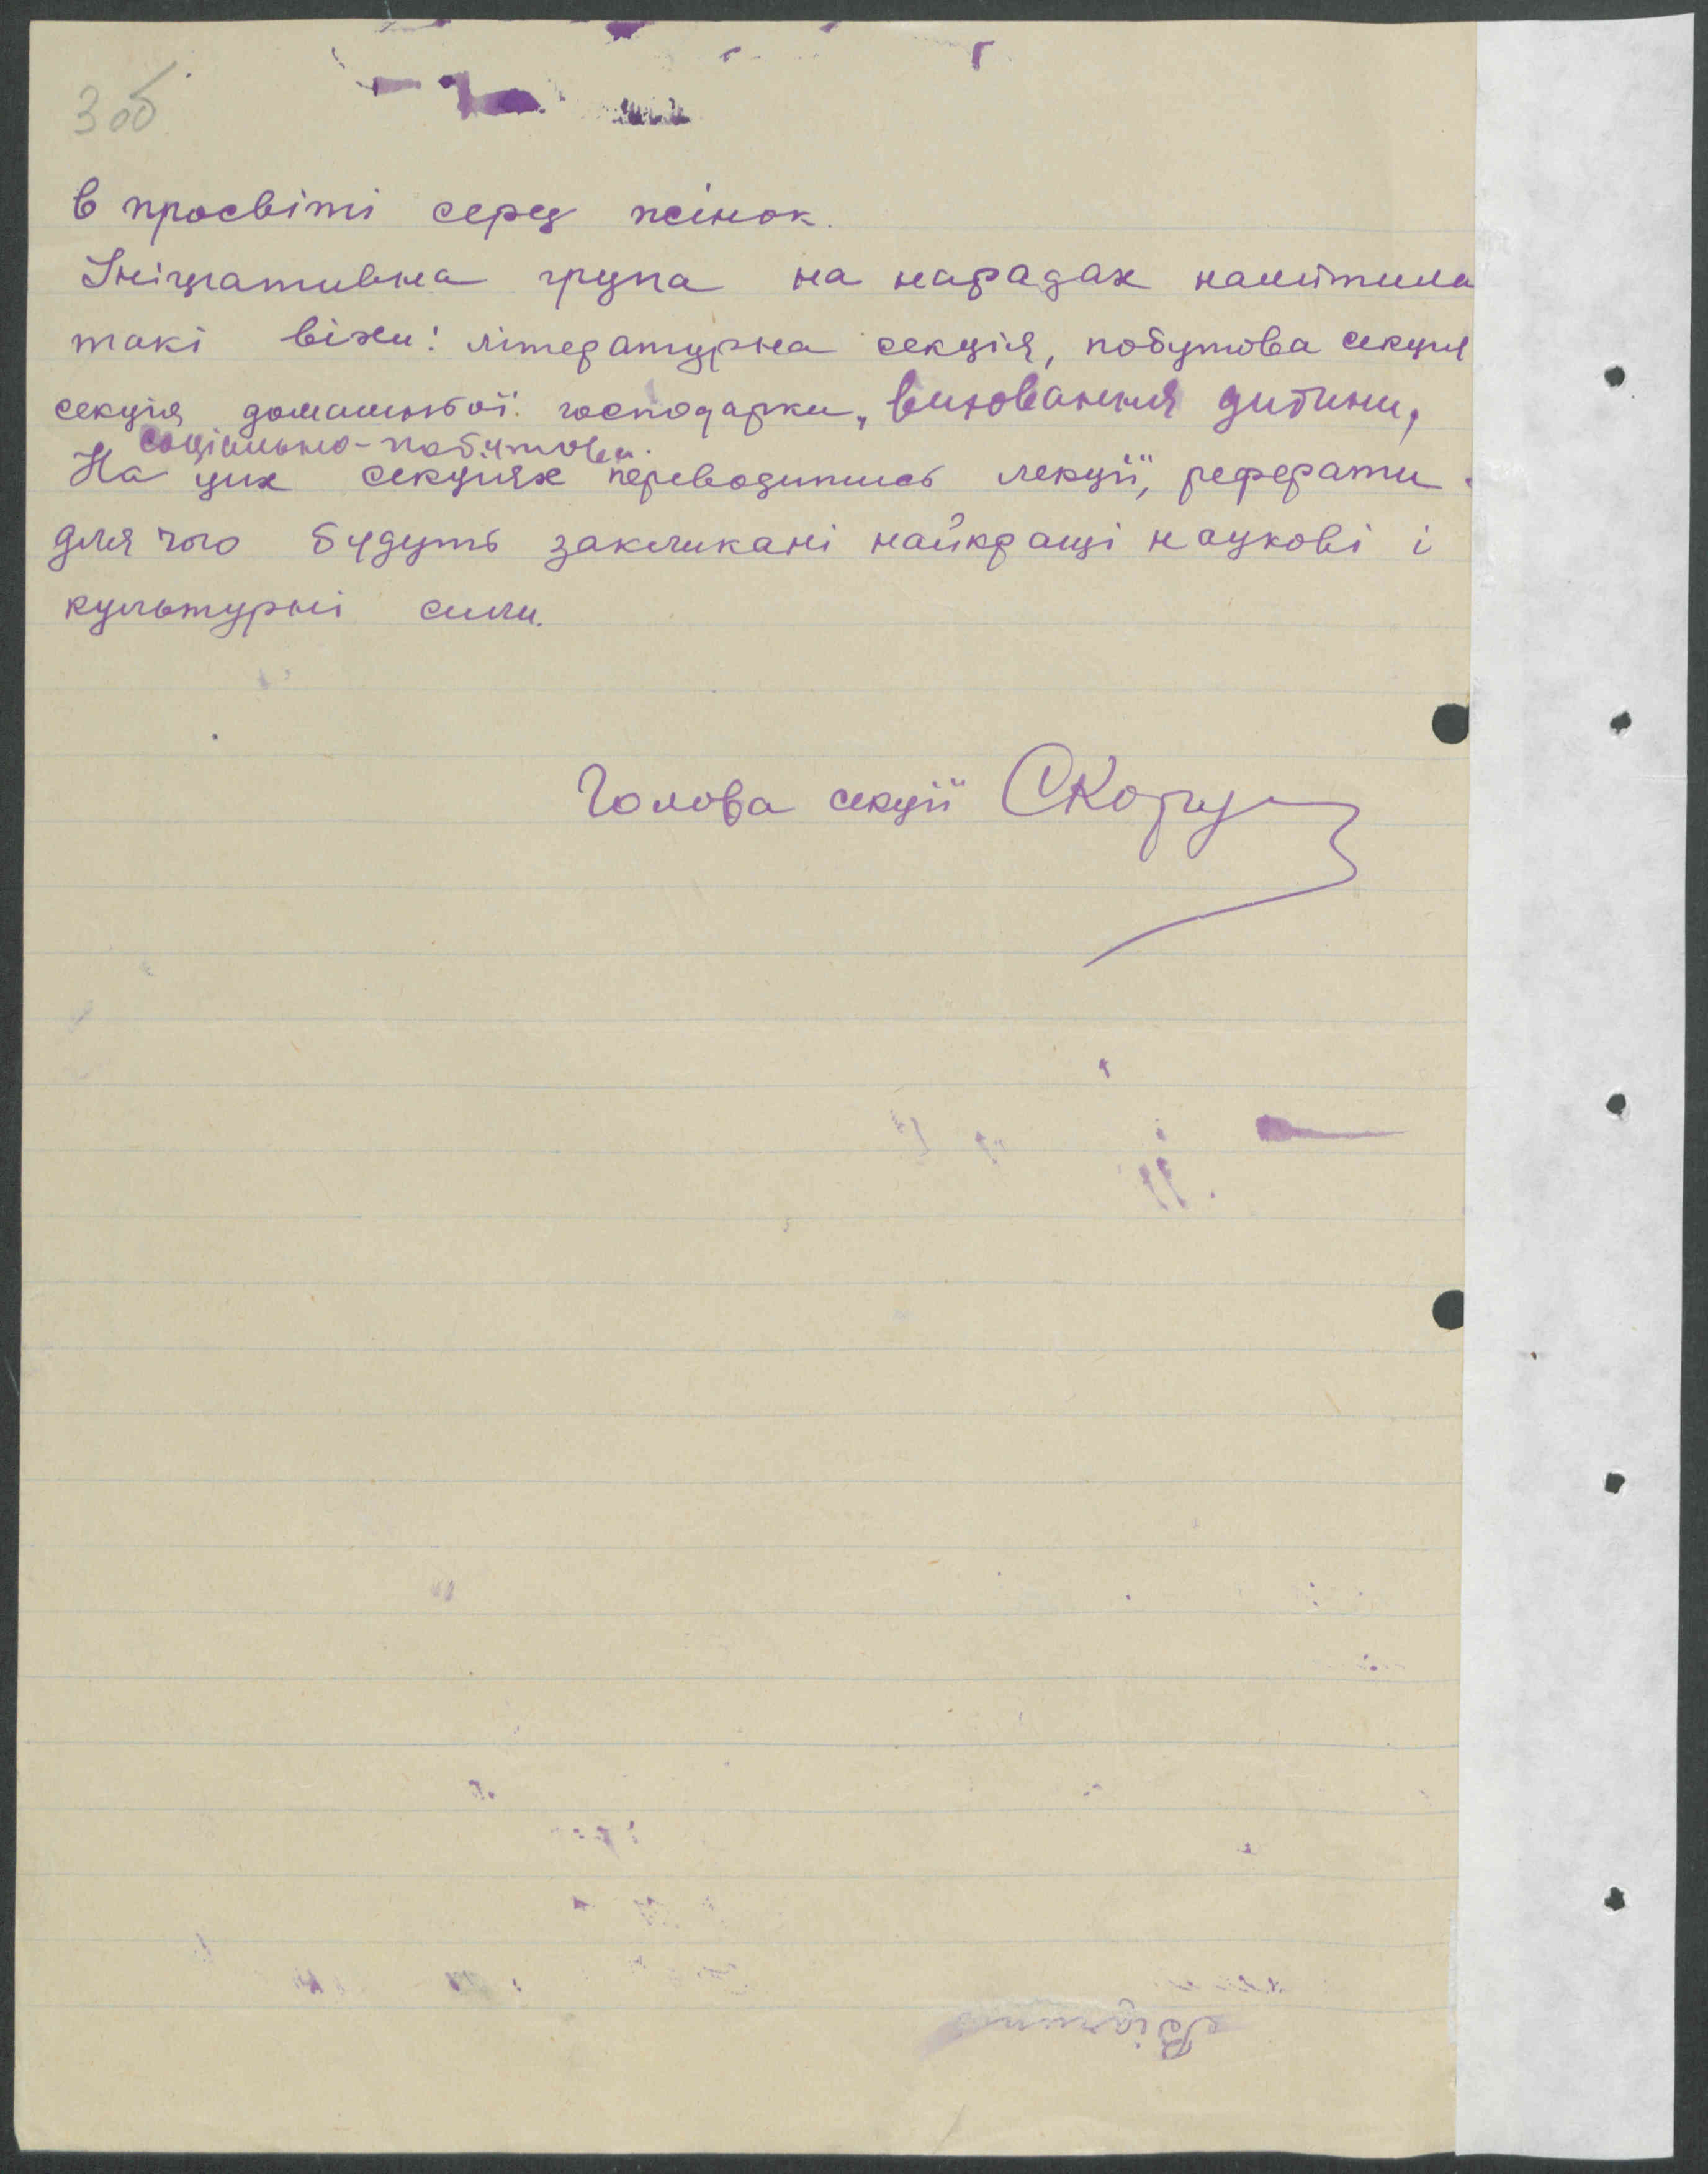 3 об
в просвіті серед жінок.
Ініціативна група на нарадах намітила
такі віхи: літературна секція, побутова секція
секція домашньої господарки, виховання дитини,
соціально-побутова.
На цих секціях переводитись лекції, реферати
для чого будуть закликані найкращі наукові і
культурні сили.
Голова секції